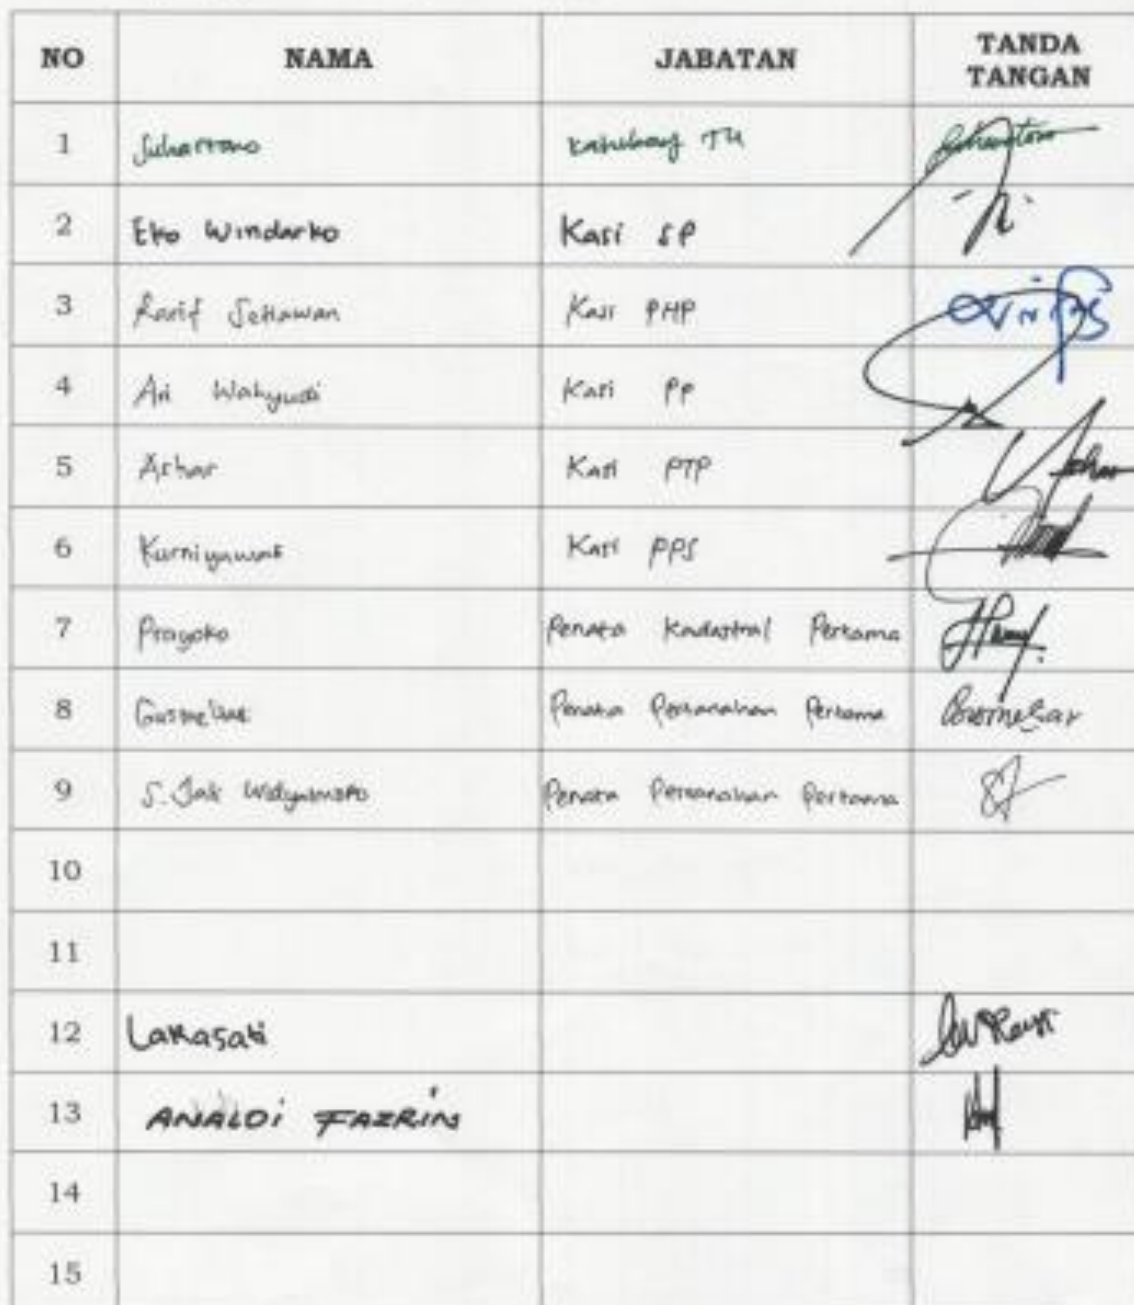 NO NAMA JABATAN TANDA TANGAN
1 Suhartono Kasubbag TU Suhartono
2 Eko Windarko Kasi SP
3 Rarif Setiawan Kasi PHP
4 Ari Wahyudi Kasi PP
5 Azhar Kasi PTP
6 Kurniyawan Kasi PPS
7 Prayoko Penata Kadastral Pertama
8 Penata Pertanahan Pertama
9 S. Jati Penata Pertanahan Pertama
10
11
12 Larasati
13 ANALDi FAZRIN
14
15